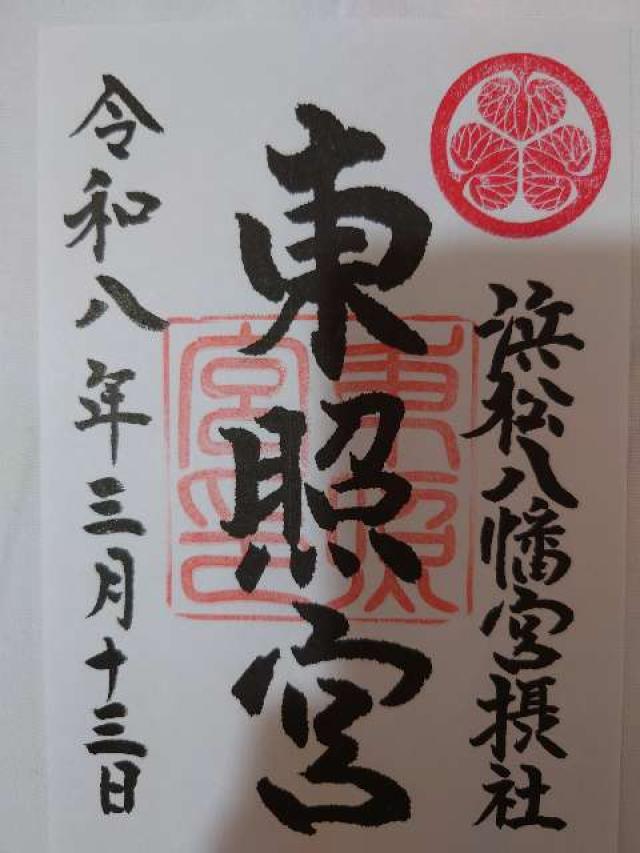 浜松八幡宮摂社
東照宮
東照宮印
令和八年三月十三日